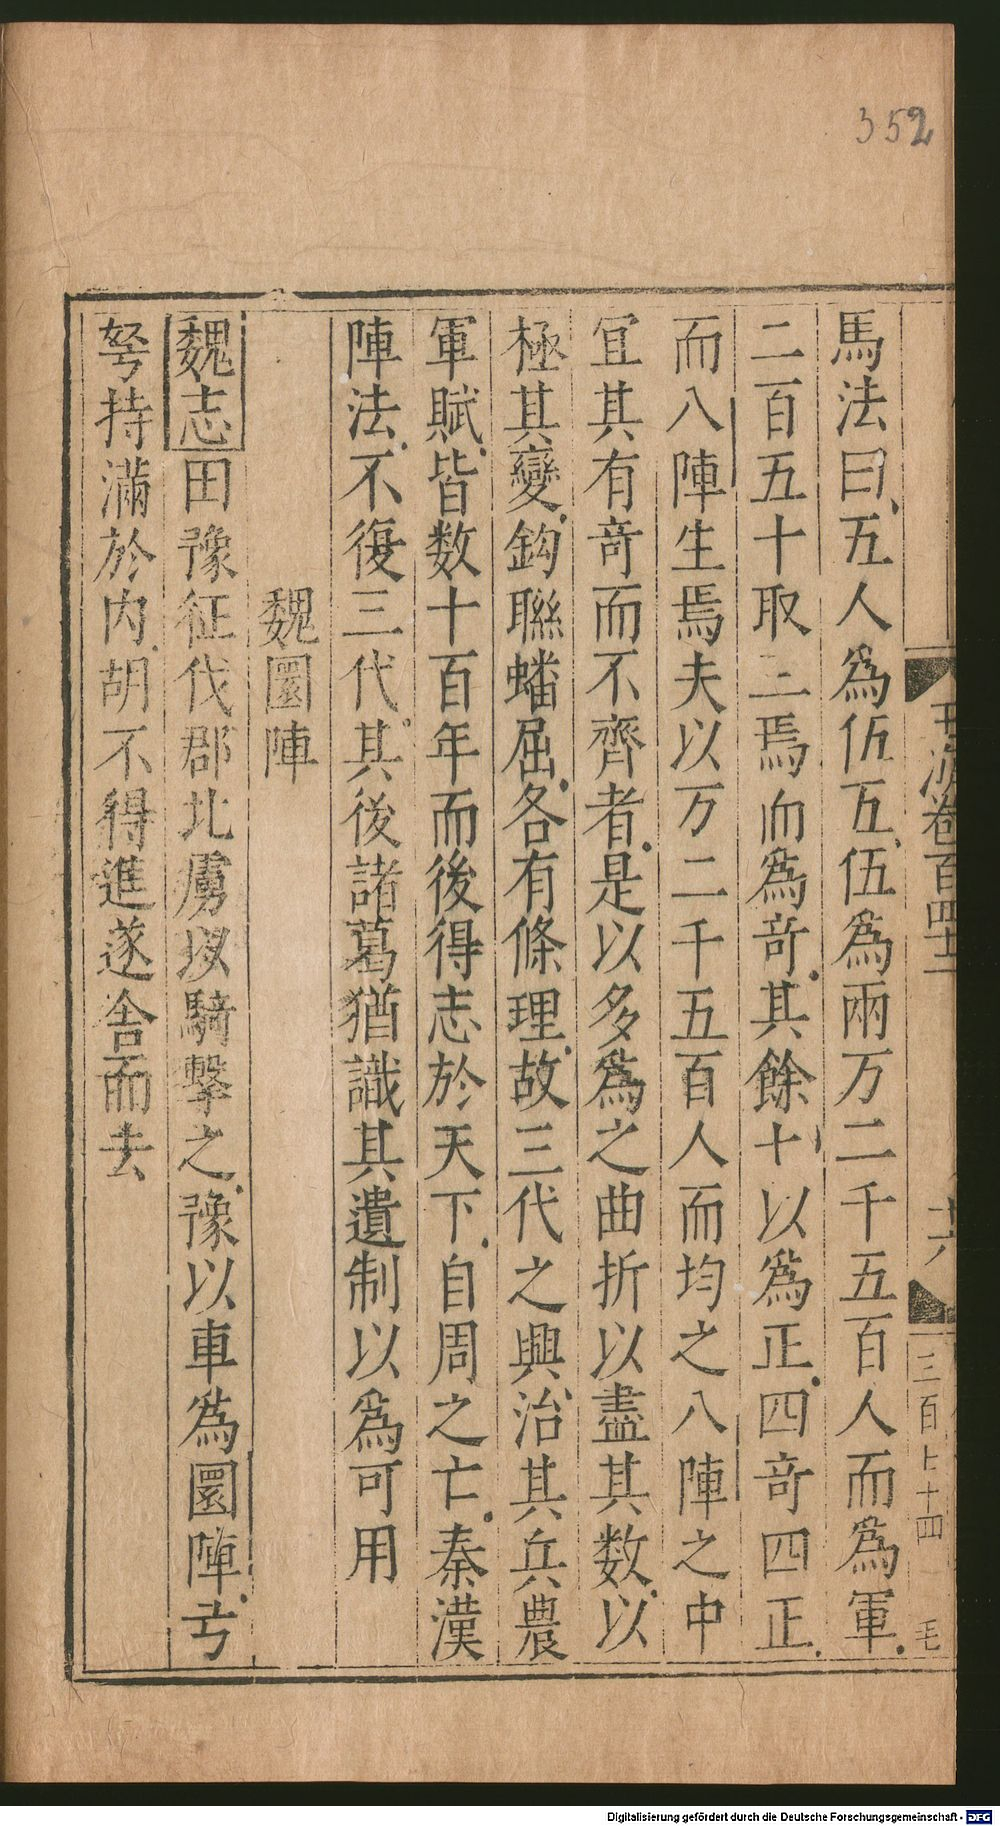 352
玉海卷百四十二
十六
三百七十四
毛
馬法曰五人爲伍五伍爲兩万二千五百人而爲軍
二百五十取三焉而爲竒其餘七以爲正四竒四正
而八陣生焉夫以万二千五百人而均之八陣之中
宜其有竒而不齊者是以多爲之曲折以盡其数以
極其變鈎聯蟠屈各有條理故三代之興治其兵農
軍賦皆数十百年而後得志於天下自周之亡秦漢
陣法不復三代其後諸葛猶識其遺制以爲可用
魏圜陣
魏志田豫征伐郡北虜以騎擊之豫以車爲圜陣弓
弩持滿於内胡不得進遂舍而去
Digitalisierung gefördert durch die Deutsche Forschungsgemeinschaft - DFG